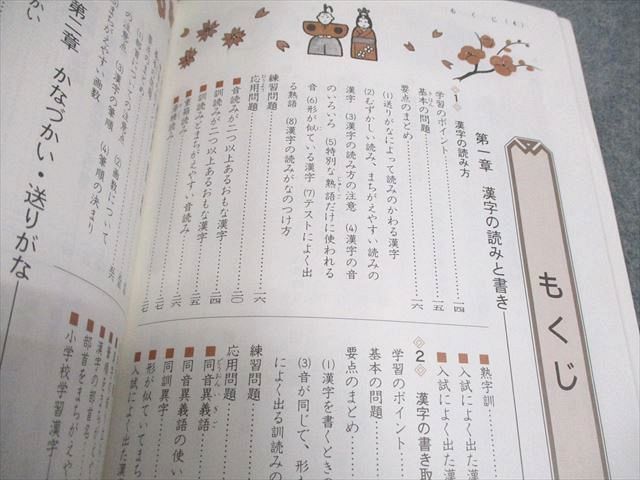 もくじ(4)
もくじ
第一章 漢字の読みと書き
1 漢字の読み方
学習のポイント……一四
基本の問題……一五
要点のまとめ……一六
(1)送りがなによって読みのかわる漢字
(2)むずかしい読み、まちがえやすい読みの
漢字 (3)漢字の読み方の注意 (4)漢字の音
のいろいろ (5)特別な熟語だけに使われる
音 (6)形が似ている漢字 (7)テストによく出
る熟語 (8)漢字の読みがなのつけ方
練習問題……一六
応用問題
音読みが二つ以上あるおもな漢字……二〇
訓読みが二つ以上あるおもな漢字……二四
訓読みとまちがえやすい音読み……二五
重箱読み……二六
湯桶読み……二七
熟字訓
入試によく出た漢
入試によく出た漢
2 漢字の書き取
学習のポイント
基本の問題
要点のまとめ
(1)漢字を書くときの
(3)音が同じで、形
によく出る訓読みの
練習問題
応用問題
同音異義語
同音異義語の使い
同訓異字
形が似ていてまち
入試によく出た漢
(2)画数について
(3)漢字の筆順 (4)筆順の決まり
ちがえやすい画数
第二章 かなづかい・送りがな
漢字の部首名
部首をまちがえや
小学校学習漢字